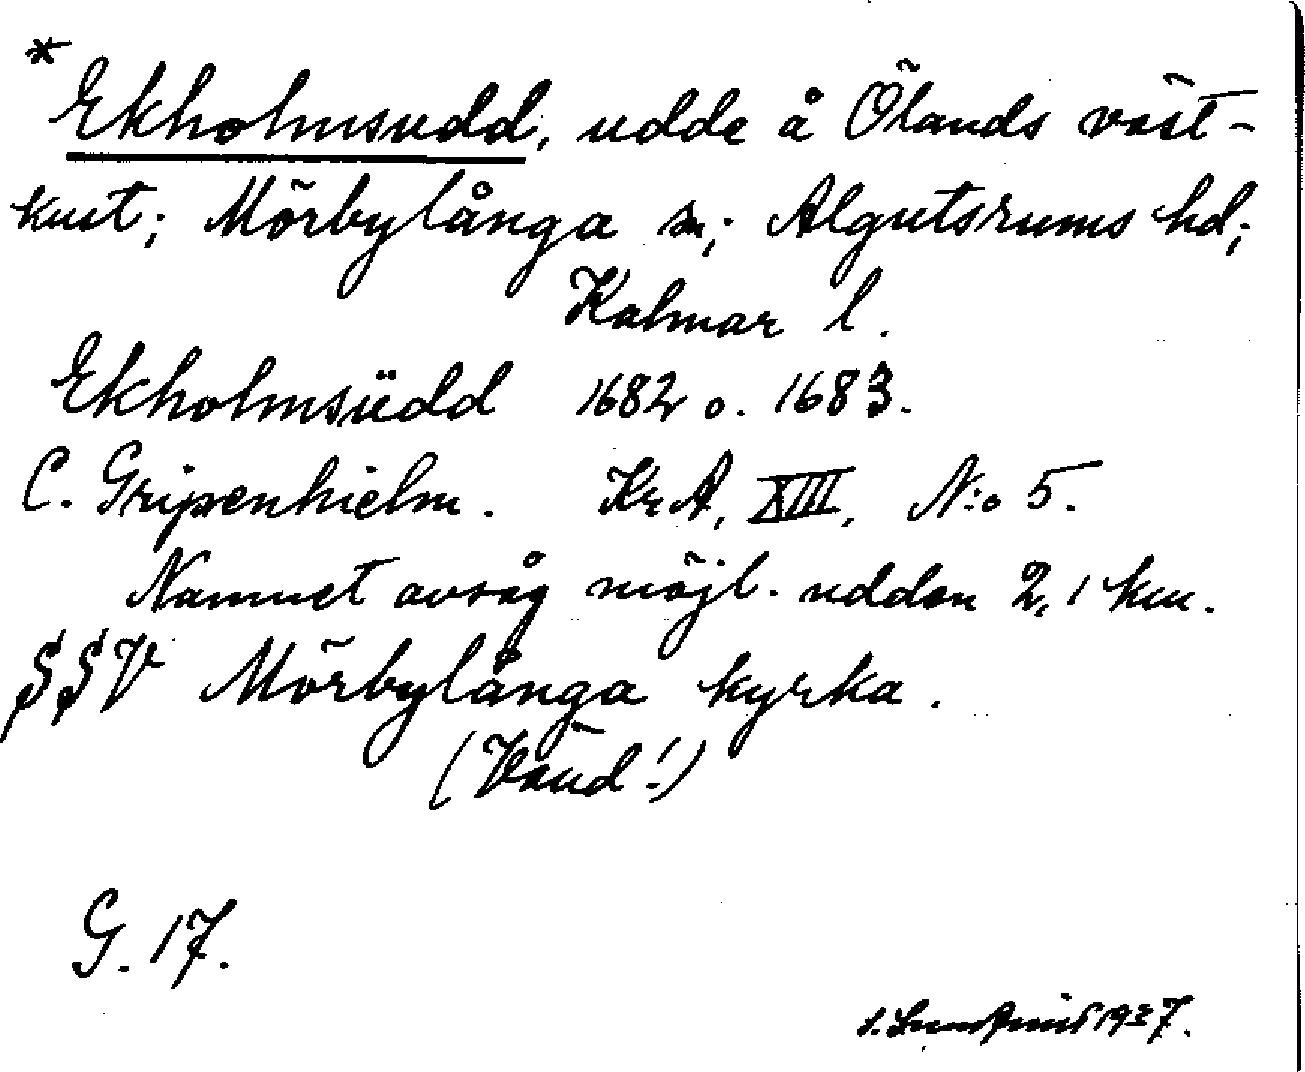 * Ekholmsudd, udde å Ölands väst-
kust; Mörbylånga sn; Algutsrums hd;
Kalmar l.
Ekholmsüdd 1682 o. 1683.
C. Gripenhielm. KrA, XIII, N:o 5.
Namnet avsåg möjl. udden 2,1 km.
SSV Mörbylånga kyrka.
(Vänd!)
G. 17.
1937.